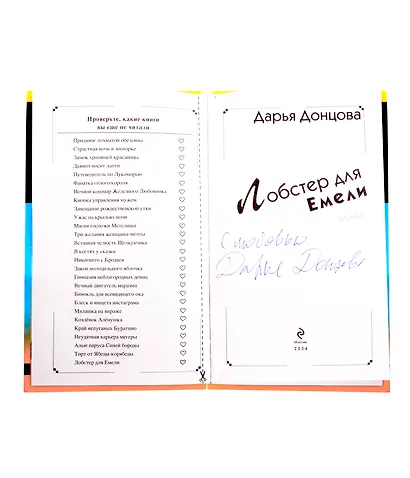 Проверьте, какие книги
вы еще не читали
Приданое лохматой обезьяны
Страстная ночь в зоопарке
Замок храпящей красавицы
Дьявол носит лапти
Путеводитель по Лукоморью
Фанатка голого короля
Ночной кошмар Железного Любовника
Кнопка управления мужем
Завещание рождественской утки
Ужас на крыльях ночи
Магия госпожи Метелицы
Три желания женщины-мечты
Вставная челюсть Щелкунчика
В когтях у сказки
Инкогнито с Бродвея
Закон молодильного яблочка
Гимназия неблагородных девиц
Вечный двигатель маразма
Бинокль для всевидящего ока
Блеск и нищета инстаграма
Милашка на вираже
Козлёнок Алёнушка
Край непуганых Буратино
Неудачная карьера мегеры
Алые паруса Синей бороды
Торт от Ябеды-корябеды
Лобстер для Емели
Дарья Донцова
Лобстер для
Емели
роман
С любовью
Дарья Донцова
Москва
2024